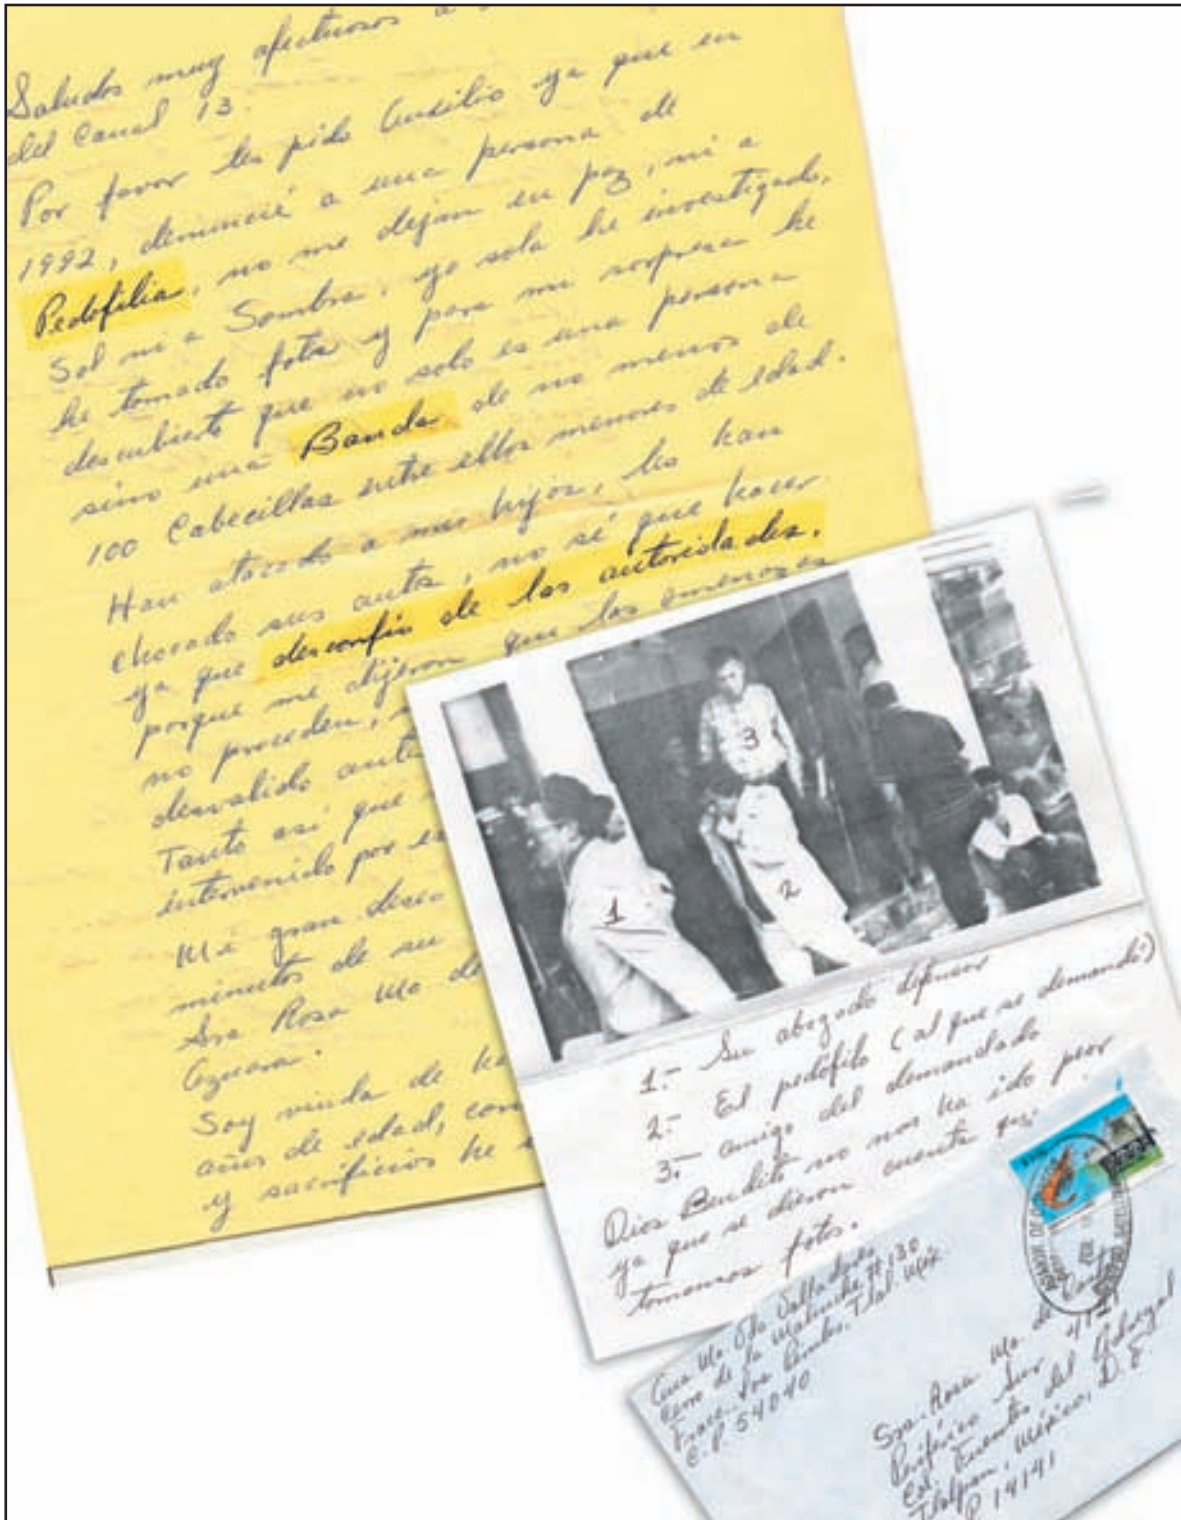 Saludos muy afectuosos a
del Canal 13.
Por favor les pido Auxilio ya que en
1992, denuncié a una persona de
Pedofilia, no me dejan en paz, ni a
Sol ni a Sombra, yo sola he investigado,
he tomado fotos y para mi sorpresa he
descubierto que no solo es una persona
sino una Banda de no menos de
100 Cabecillas entre ellos menores de edad.
Han atacado a mis hijos, les han
chocado sus autos, no sé que hacer
ya que desconfio de las autoridades.
porque me dijeron que las amenazas
no proceden,
desvalido ante
Tanto así que
intervenido por
Mi gran deseo
minutos de su
Sra Rosa Ma de
Azuara.
Soy viuda de
años de edad, con
y sacrificios he
1
2
3
1.- Su abogado defensor
2.- El pedófilo (al que se demandó)
3.- amigo del demandado
Dios Bendito no nos ha ido peor
ya que se dieron cuenta que
tomamos fotos.
Ma. Valladares
de la Malinche # 130
Fracc. Los Pirules, Tlal. Méx
C.P. 54040
Sra. Rosa Ma. de
Periférico Sur 4121
Col. Fuentes del Pedregal
Tlalpan, México, D.F.
P 14141